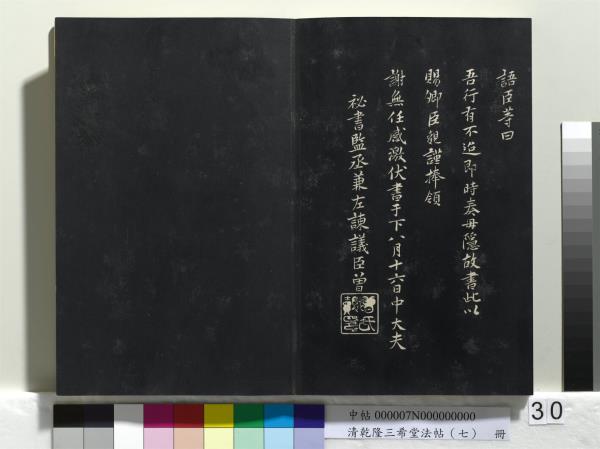 語臣等曰
吾行有不迨即時奏毋隱故書此以
賜卿臣親謹捧領
謝無任感激伏書于下八月十六日中大夫
祕書監丞兼左諫議臣曾
中帖 000007N000000000
清乾隆三希堂法帖（七） 冊
30